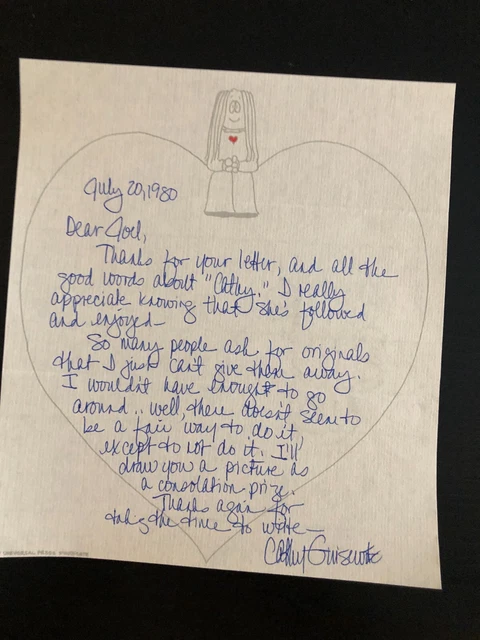 July 20, 1980
Dear Joel,
Thanks for your letter, and all the
good words about "Cathy." I really
appreciate knowing that she's followed
and enjoyed—
So many people ask for originals
that I just can't give them away.
I wouldn't have enough to go
around.. well, there doesn't seem to
be a fair way to do it,
except to not do it. I'll
draw you a picture as
a consolation prize.
Thanks again for
taking the time to write—
Cathy Guisewite
UNIVERSAL PRESS SYNDICATE